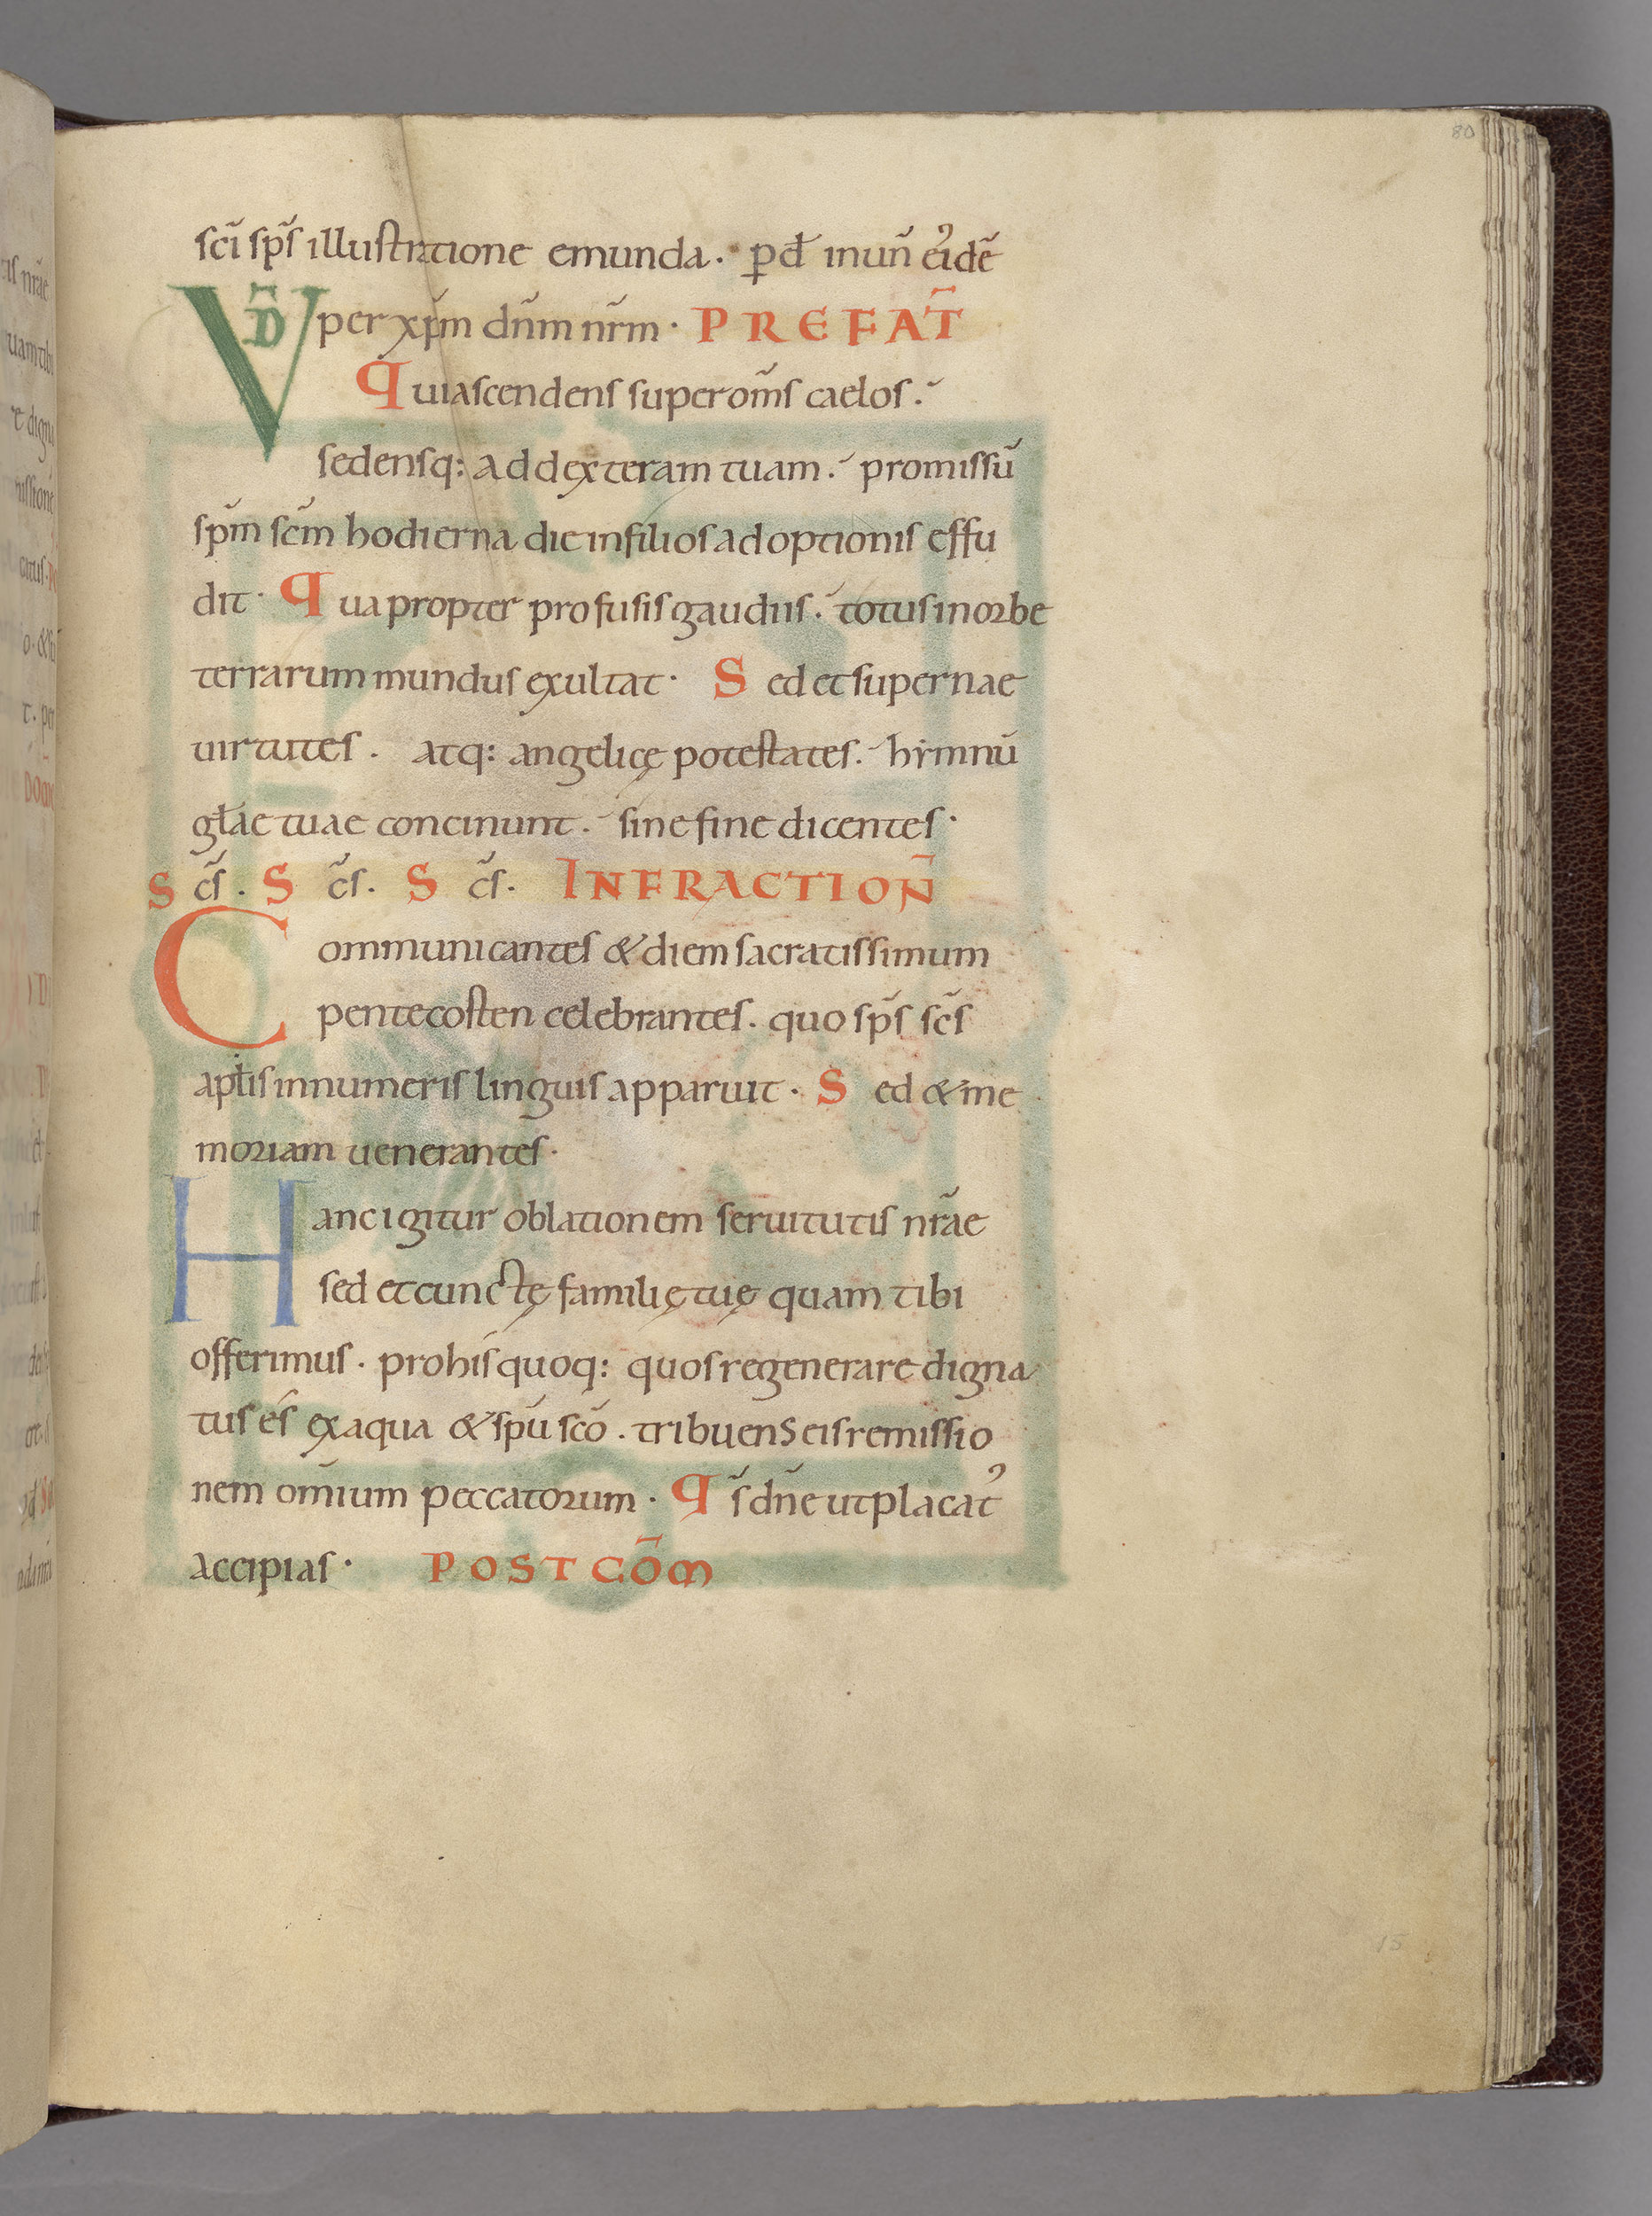 80
sci̅ sp̅s illustratione emunda. p̲d̅ inun̅ ei'de̅
VD̅ per xp̅m dn̅m nr̅m. PREFAT̅
Qui ascendens super om̅s caelos.
sedensq: ad dexteram tuam. promissu̅
sp̅m sc̅m hodierna die in filios adoptionis effu
dit. Qua propter profusis gaudiis. totus in orbe
terrarum mundus exultat. Sed et supernae
uirtutes. atq: angelicę potestates. hẏmnu̅
gl̅ae tuae concinunt. sine fine dicentes.
Sc̅s. Sc̅s. Sc̅s. INFRACTION̅
Communicantes & diem sacratissimum
pentecosten celebrantes. quo sp̅s sc̅s
apl̅is innumeris linguis apparuit. Sed & me
moriam uenerantes.
Hanc igitur oblationem seruitutis nr̅ae
sed et cunctę familię tuę quam tibi
offerimus. pro his quoq: quos regenerare digna
tus es ex aqua & sp̅u sc̅o. tribuens eis remissio
nem om̅ium peccatorum. Qs̅ dn̅e ut placat'
accipias. POST CO̅M
15